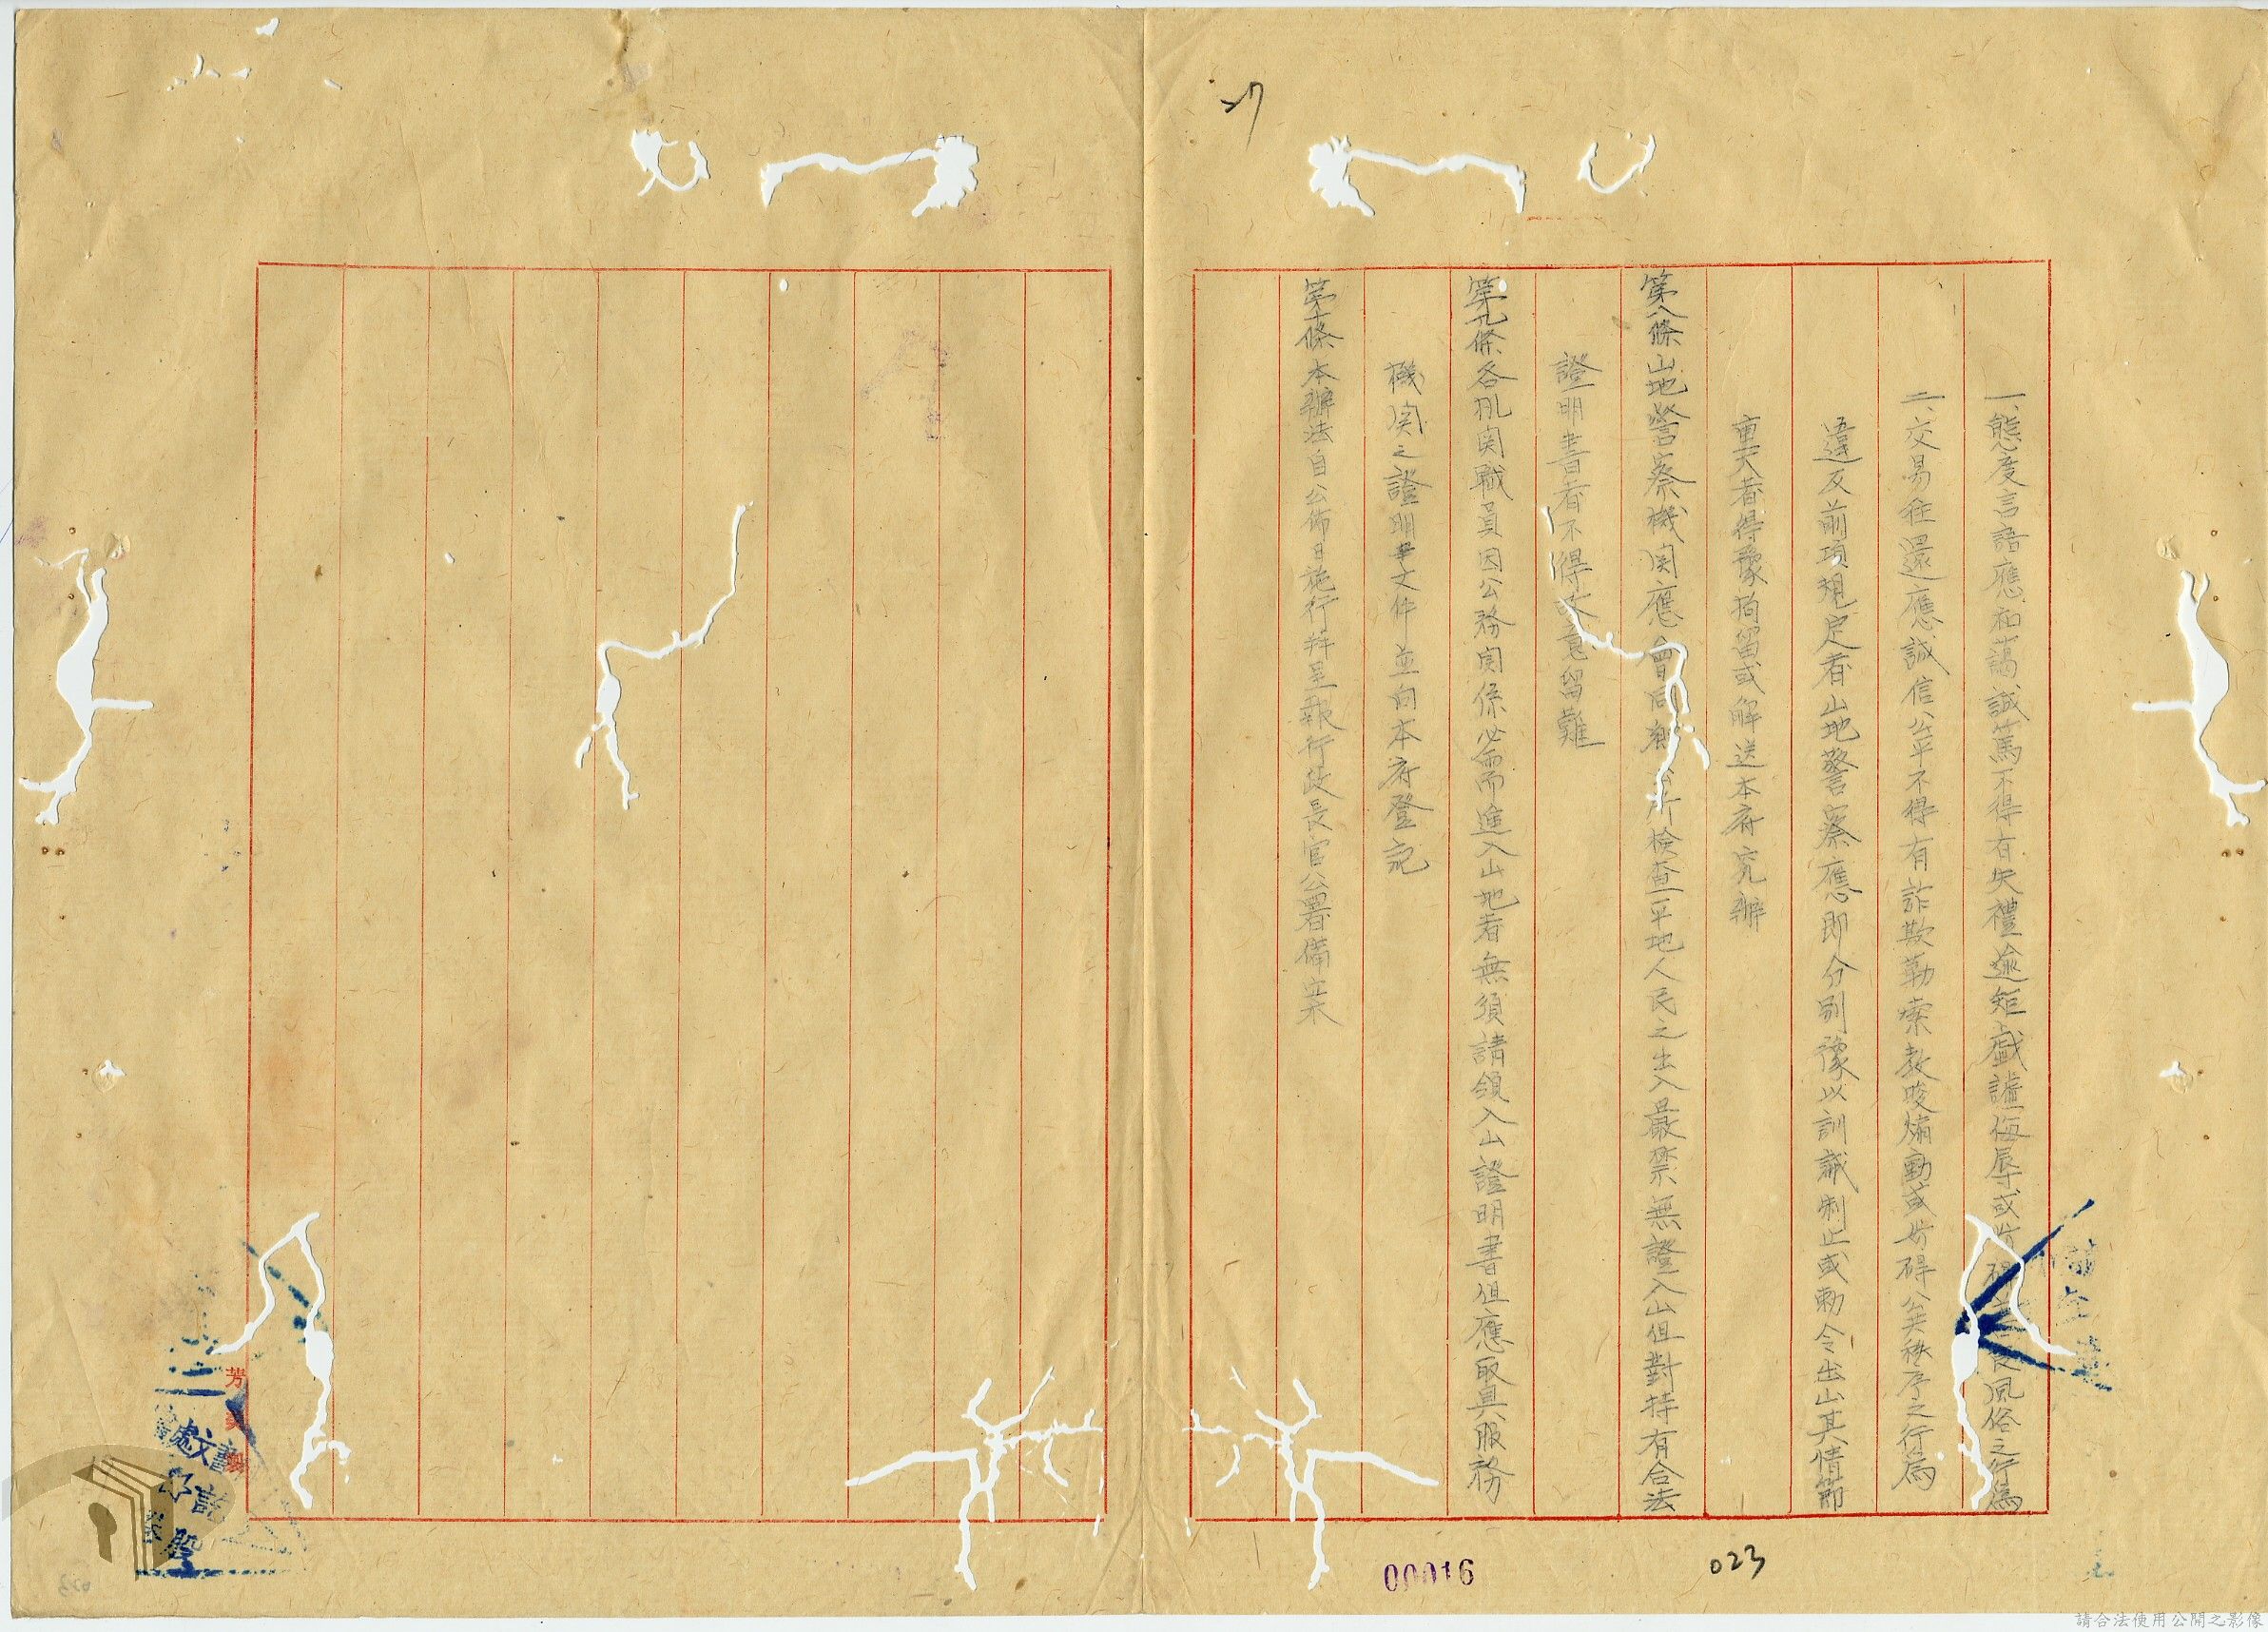 一、態度言語應和藹誠篤不得有失禮逾矩戲謔侮辱或妨碍善良風俗之行為
二、交易往還應誠信公平不得有詐欺勒索教唆煽動或妨碍公共秩序之行為
違反前項規定者山地警察應即分別豫以訓誡制止或勒令出山其情節
重大者得豫拘留或解送本府究辦
第八條山地警察機関應會同鄉公所檢查平地人民之出入嚴禁無證入山但對持有合法
證明書者不得故意留難
第九條各机関職員因公務関係必需而進入山地者無須請領入山證明書但應取具服務
機関之證明文件並向本府登記
第十條本辦法自公佈日施行并呈報行政長官公署備案
00016
023
請合法使用公開之影像